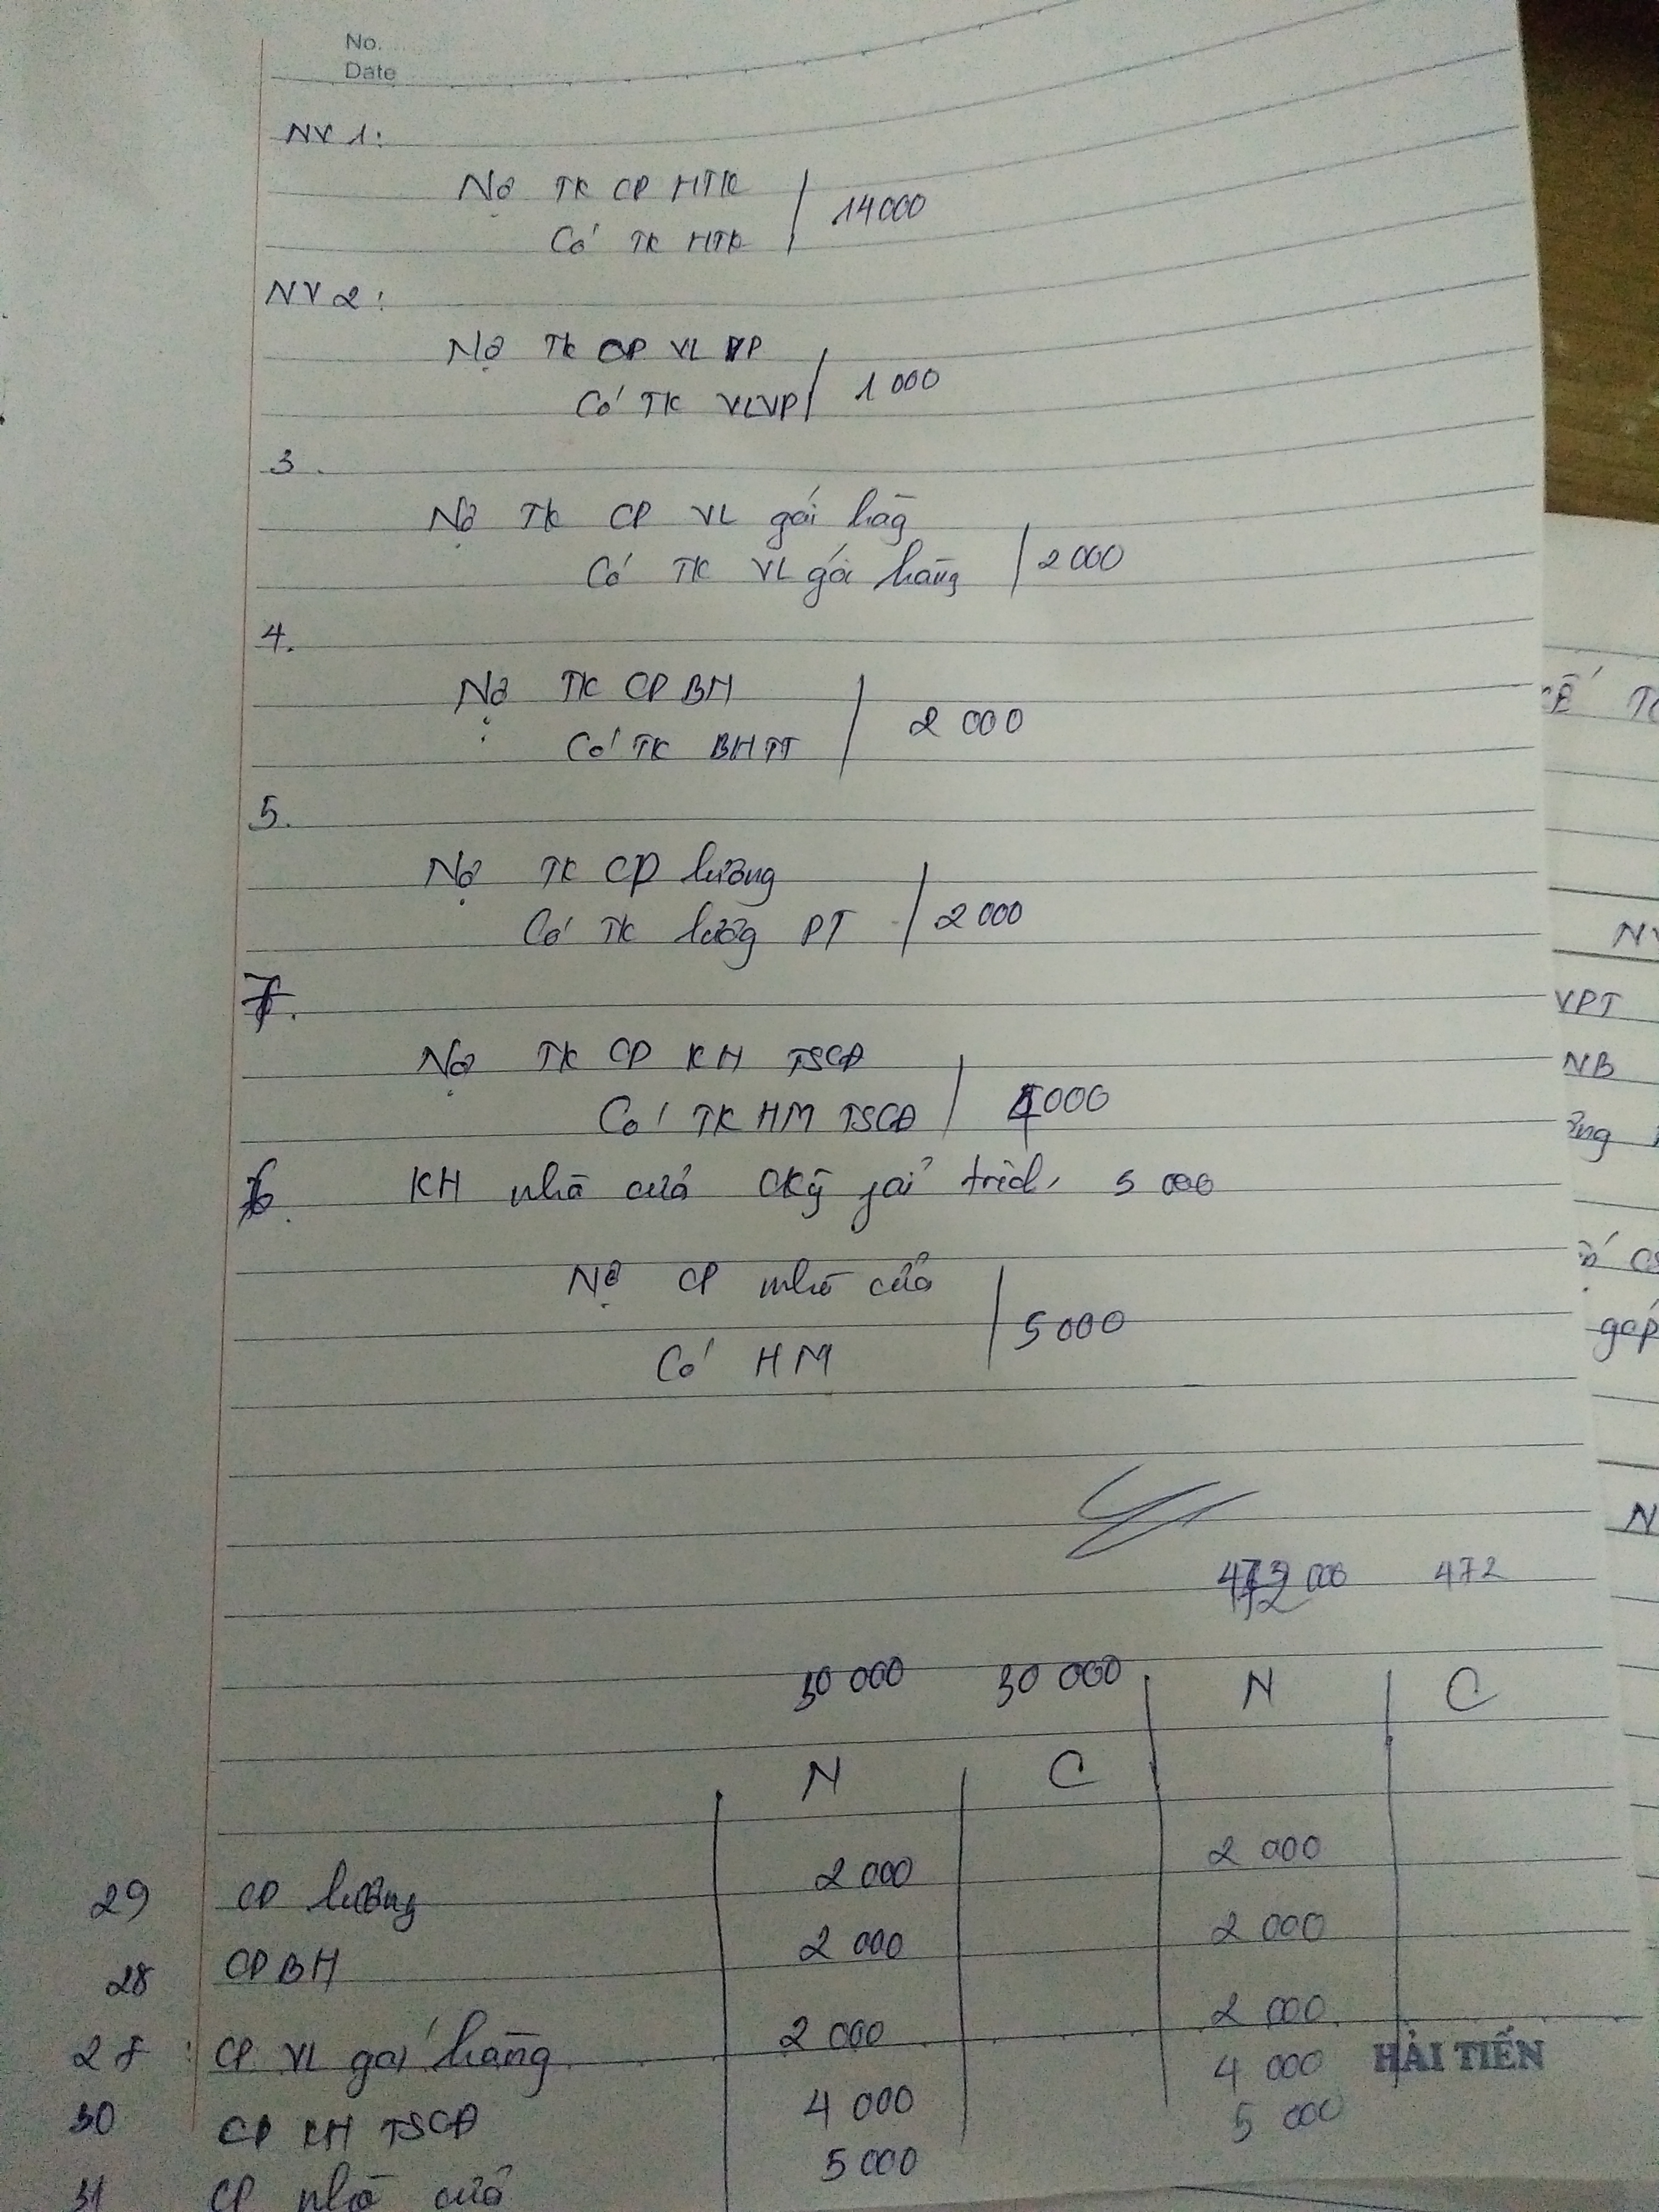 No.
Date
NV 1:
Nợ TK CP HTK
14000
Có TK HTK
NV 2:
Nợ TK CP VL VP
1 000
Có TK VLVP
3.
Nợ TK CP VL gói hàg
Có TK VL gói hàng 2 000
4.
Nợ TK CP BH
2 000
Có TK BHTT
5.
Nợ TK CP lương
Có TK lương PT 2 000
7.
Nợ TK CP KH TSCĐ
Có TK HM TSCĐ 4000
6. KH nhà cửa 5 000
Nợ CP nhà cửa
5 000
Có HM
472 000 472
30 000 30 000 N C
N C
29 CP lương 2 000 2 000
28 CP BH 2 000 2 000
CP VL gói hàng 2 000 2 000
30 CP KH TSCĐ 4 000 4 000
31 CP nhà cửa 5 000 5 000
HẢI TIẾN
VPT
NB